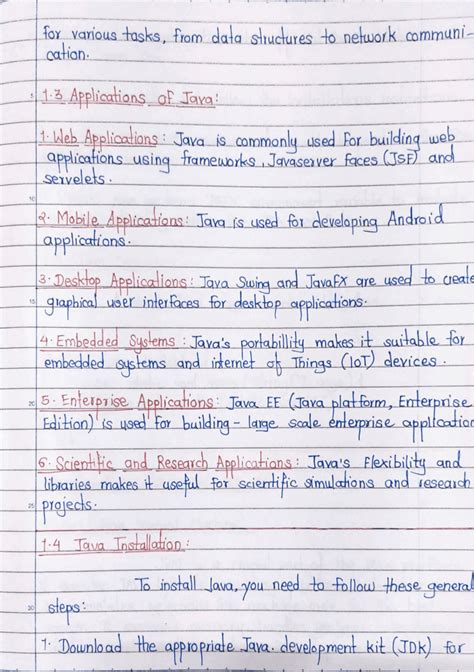 for various tasks, from data structures to network communi-
cation.
5 1.3 Applications of Java:
1. Web Applications: Java is commonly used for building web
applications using frameworks, Javaserver faces (JSF) and
servelets.
10
2. Mobile Applications: Java is used for developing Android
applications.
3. Desktop Applications: Java Swing and JavaFX are used to create
15 graphical user interfaces for desktop applications.
4. Embedded Systems: Java's portabillity makes it suitable for
embedded systems and internet of Things (IoT) devices.
20 5. Enterprise Applications: Java EE (Java platform, Enterprise
Edition) is used for building - large scale enterprise application
6. Scientific and Research Applications: Java's Flexibility and
libraries makes it useful for scientific simulations and research
25 projects.
1.4 Java Installation:
To install Java, you need to follow these general
30 steps:
1. Download the appropriate Java. development kit (JDK) for